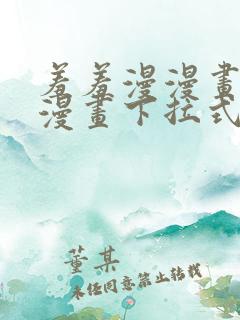 羞羞漫漫畫
漫畫下拉式
董某
未经同意禁止转载